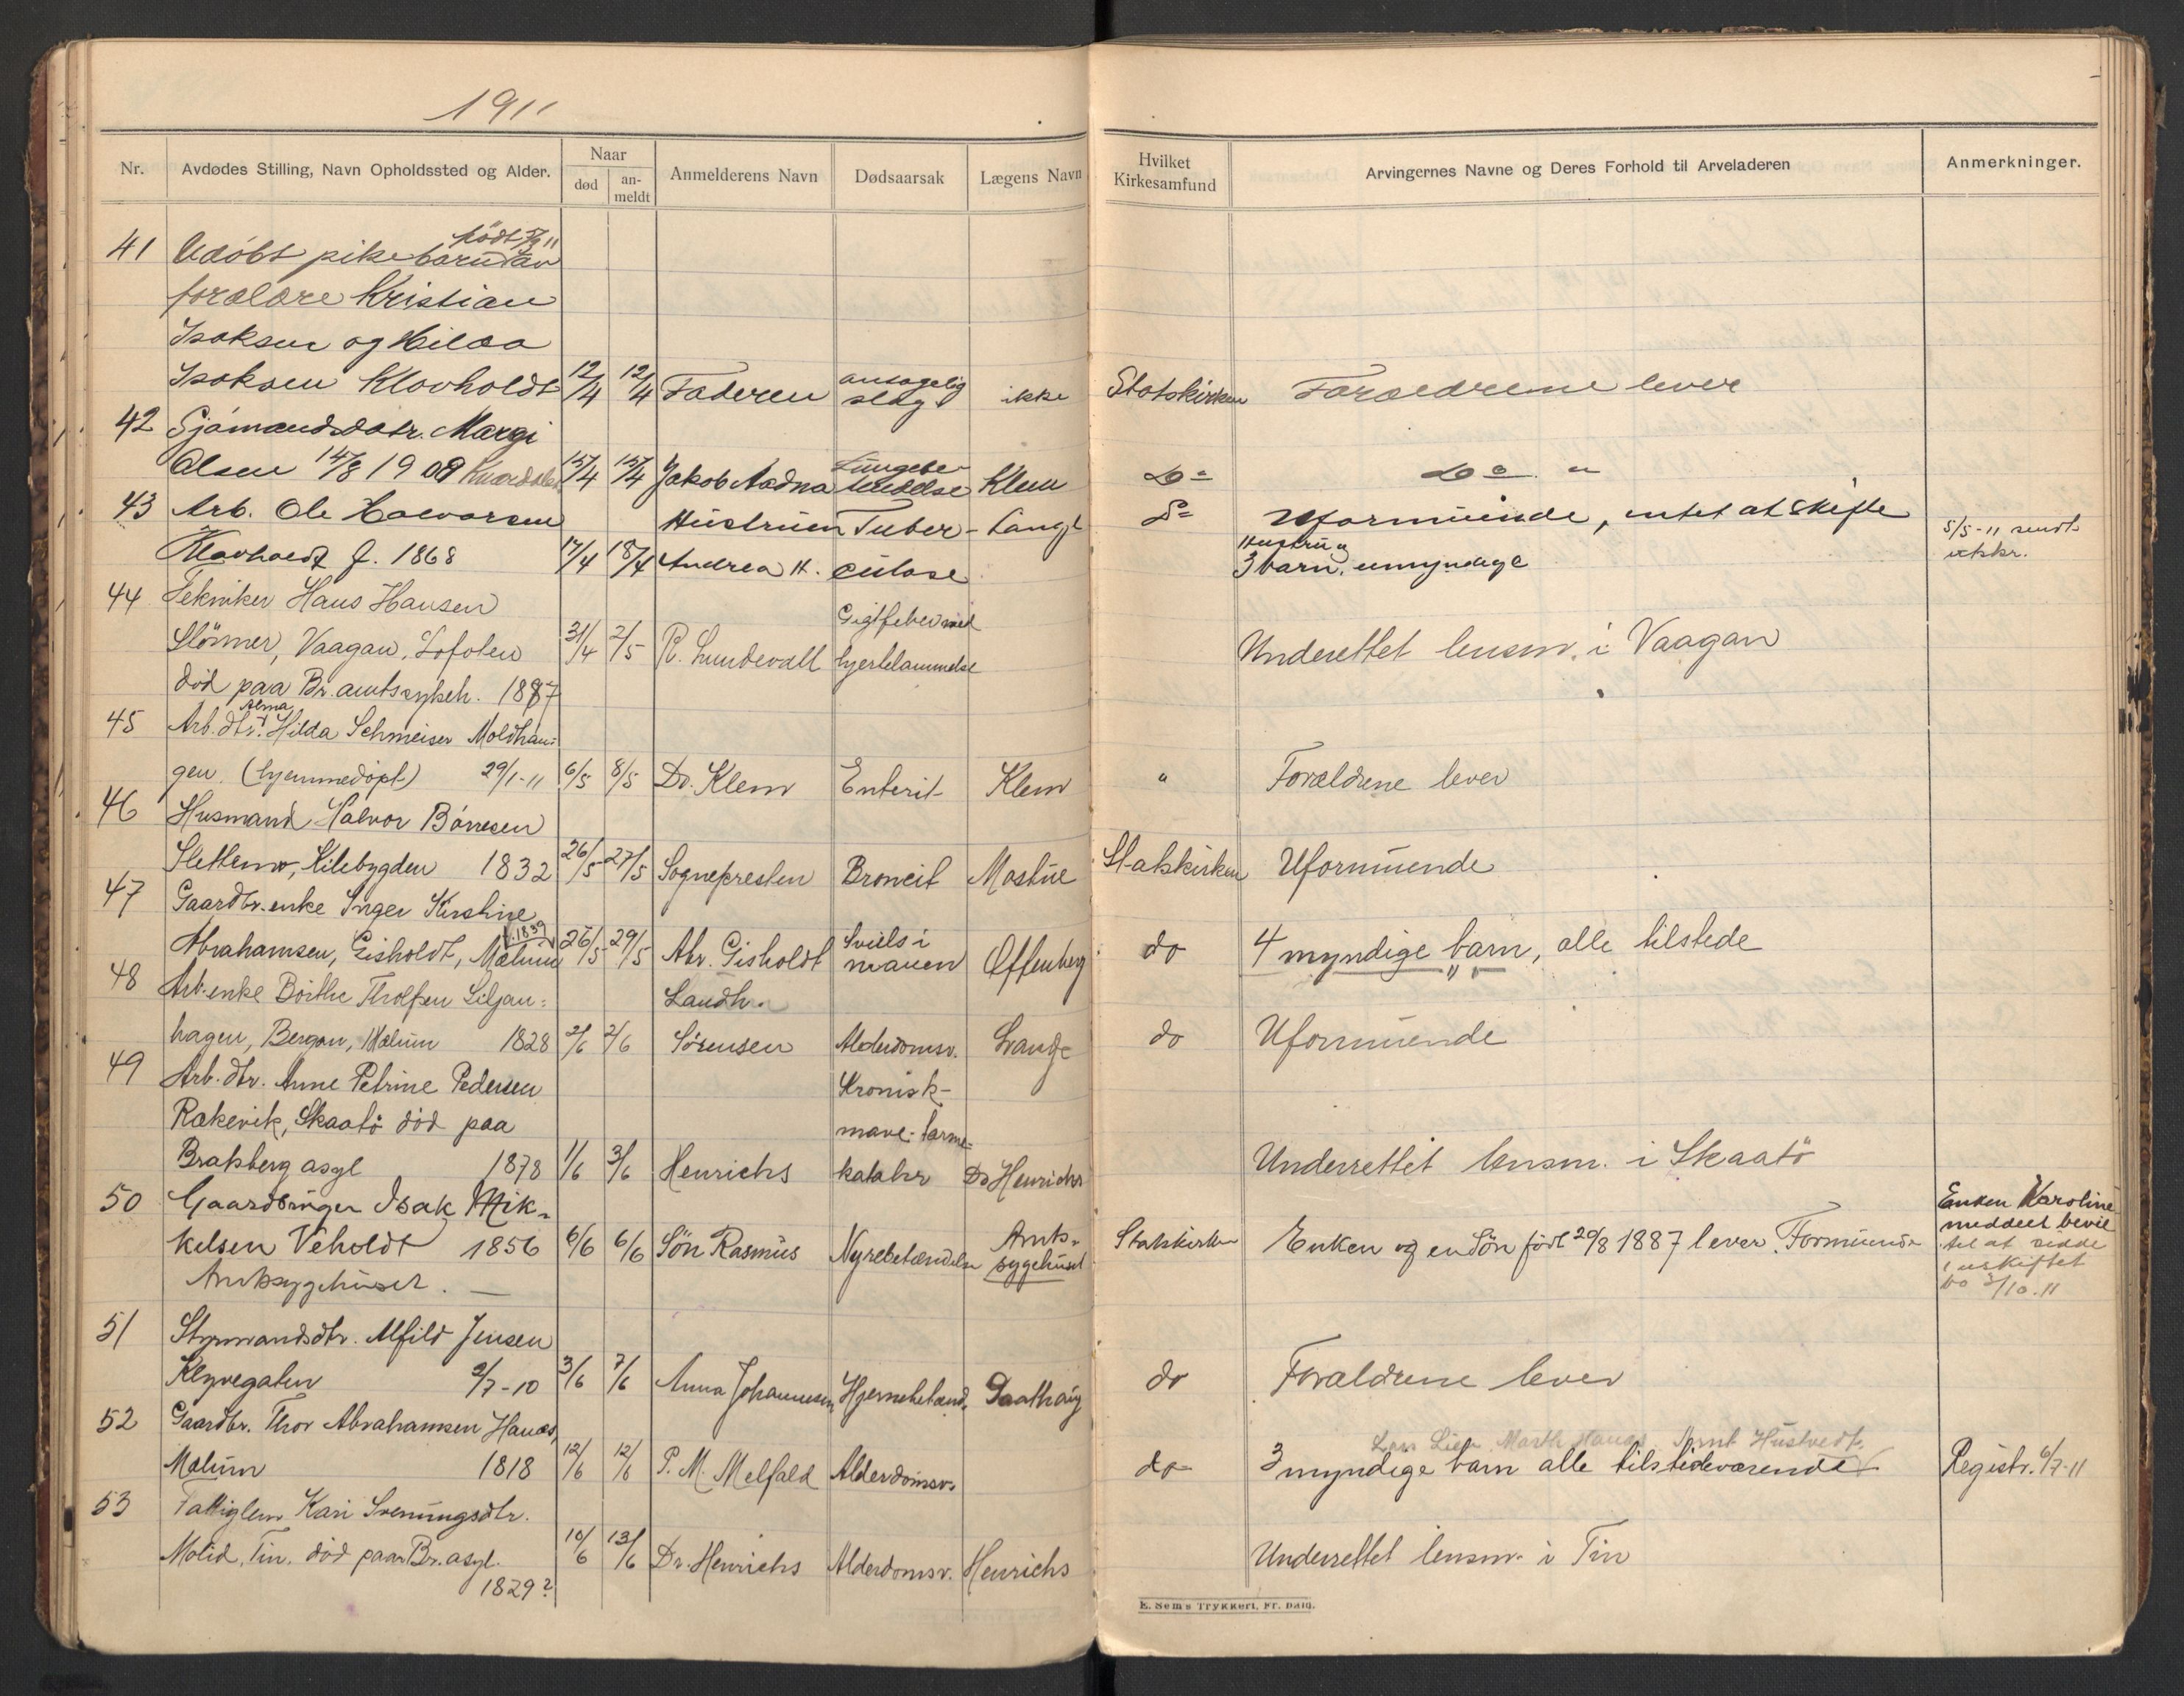 1911
Nr.
Avdødes Stilling, Navn Opholdssted og Alder.
Naar
død
an-
meldt
Anmelderens Navn
Dødsaarsak
Lægens Navn
Hvilket
Kirkesamfund
Arvingernes Navne og Deres Forhold til Arveladeren
Anmerkninger.
født
41 Udøbt pikebarn av
forældre Kristian
Isaksen og Hilda
Isaksen Klovholdt 12/4 12/4 Faderen antagelig slag ikke Statskirken Forældrene lever
42 Sjømandsdatr. Margi
Olsen 14/8 1908 15/4 15/4 Jakob Aadna Lungebe- tændelse Klem Do Do "
43 Arb. Ole Halvorsen Hustruen Tuber- Lange Do Uformuende, intet at skifte 5/5-11 sendt
Klovholdt f. 1868 17/4 18/4 Andrea H. culose Hustru og 3 barn, umyndige
44 Tekniker Hans Hansen
Størmer, Vaagan, Lofoten 31/4 2/5 R. Lundevall Gigtfeber med hjertelammelse Underettet lensm. i Vaagan
død paa Br. amtssykeh. 1887
Alma
45 Arb. dtr. Hilda Schmeiser Moldhau-
gen. (hjemmedøpt) 29/1-11 6/5 8/5 Dr. Klem Enterit Klem " Forældrene lever
46 Husmand Halvor Børresen
Slettemo, Kilebygden 1832 26/5 27/5 Sognepresten Broncit Mostue Statskirken Uformuende
47 Gaardbr. enke Inger Kirstine
Abrahamsen, Gisholdt, Mælum f. 1839 26/5 29/5 Abr. Gisholdt Svulst i maven Offenberg do 4 myndige barn, alle tilstede
48 Arb. enke Børthe Tholfsen Siljan- Landh.
hagen, Bergan, Mælum 1828 2/6 2/6 Sørensen Alderdomsv. Lange do Uformuende
49 Arb. dtr. Anne Petrine Pedersen Kronisk-
Rakevik, Skaatö död paa mave-tarm-
Bratsberg asyl 1878 1/6 3/6 Henrichs katahr Dr Henrichs Underrettet lensm. i Skaatö
50 Gaardbruger Isak Mik-
kelsen Veholdt 1856 6/6 6/6 Søn Rasmus Nyrebetændelse Amts- sygehuset Statskirken Enken og en Søn født 20/8 1887 lever. Formuende
Amtssygehuset. —
Enken Karoline
meddelt bevil
til at sidde
i uskiftet
bo 3/10.11
51 Styrmandsdtr. Alfild Jensen
Klyvegaten 2/7-10 3/6 7/6 Anna Johannesen Hjernebetænd. Paathaug do Forældrene lever
52 Gaardbr. Thor Abrahamsen Hanaas,
Mælum 1818 12/6 12/6 P. M. Melfald Alderdomsv. do 3 myndige barn alle tilstedeværende Registr. 6/7-11
53 Fattiglem Kari Svenungsdtr.
Molid, Tin. død paa Br. asyl. 10/6 13/6 Dr. Henrichs Alderdomsv. Henrichs Underrettet lensm. i Tin
1829?
E. Sem's Trykkeri, Fr. hald.